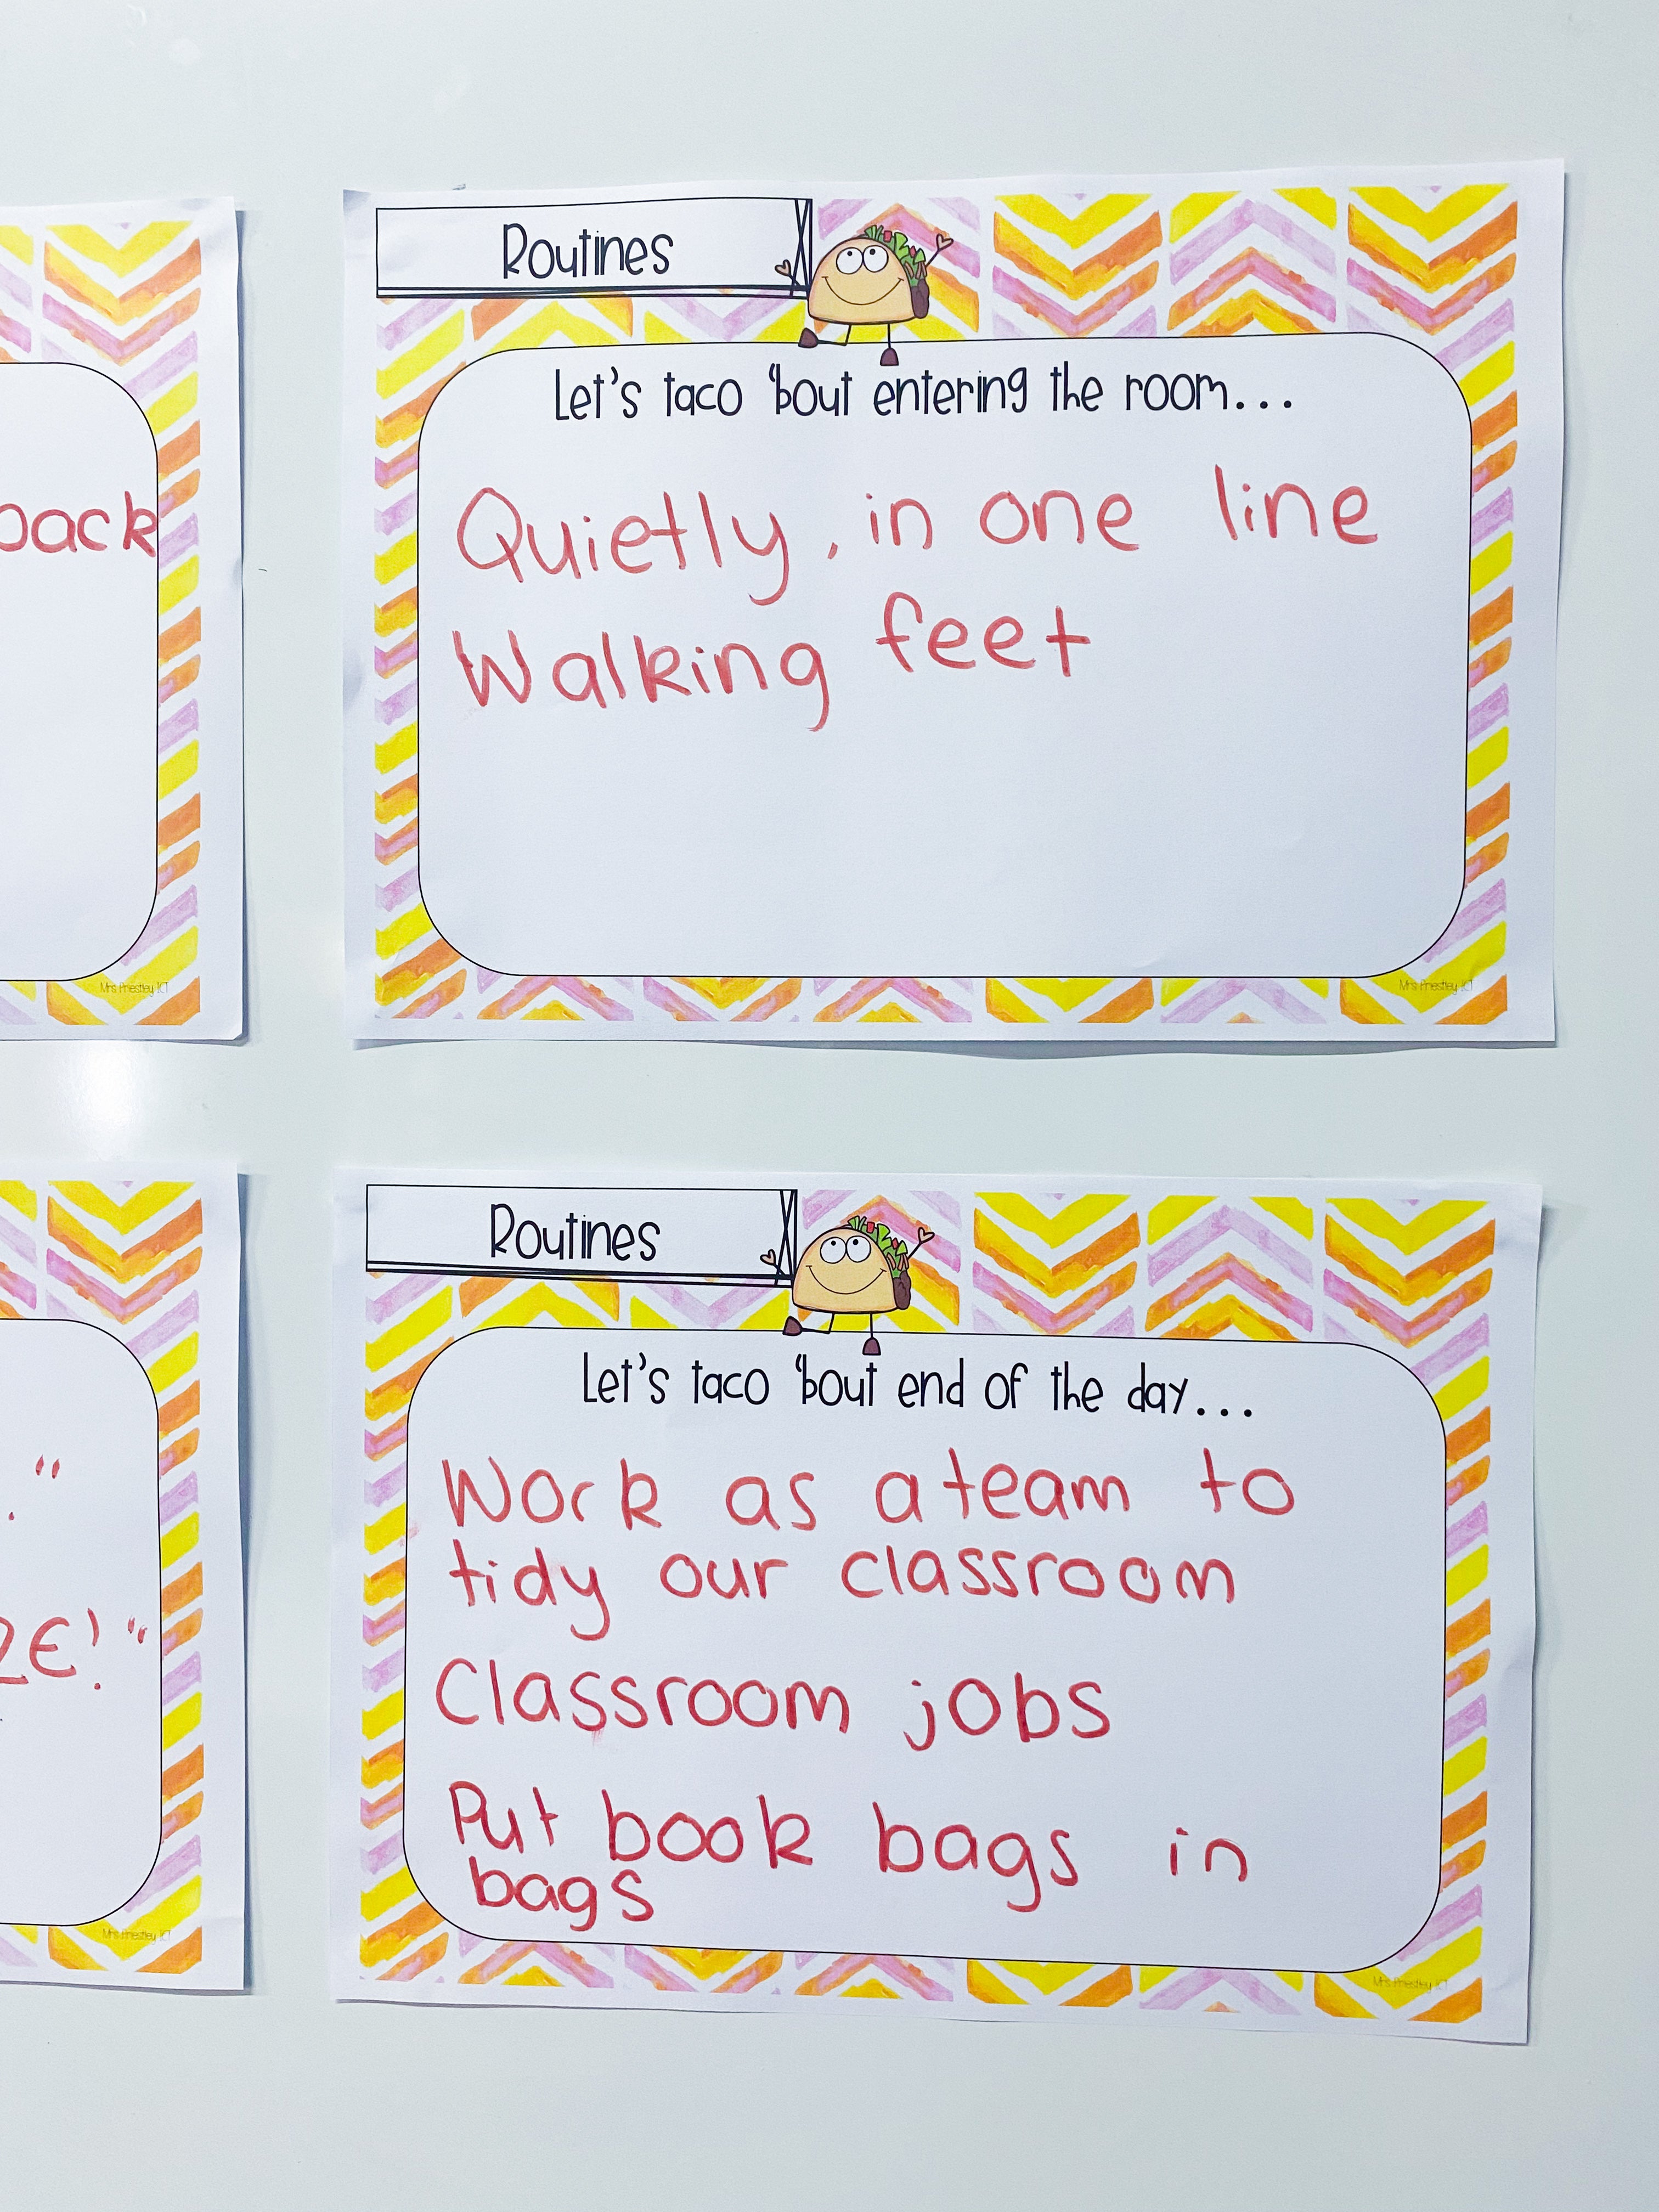 back
Mrs Priestley ICT
Routines
Let's taco 'bout entering the room...
Quietly, in one line
Walking feet
Mrs Priestley ICT
."
!"
Mrs Priestley ICT
Routines
Let's taco 'bout end of the day...
Work as a team to
tidy our classroom
Classroom jobs
Put book bags in
bags
Mrs Priestley ICT